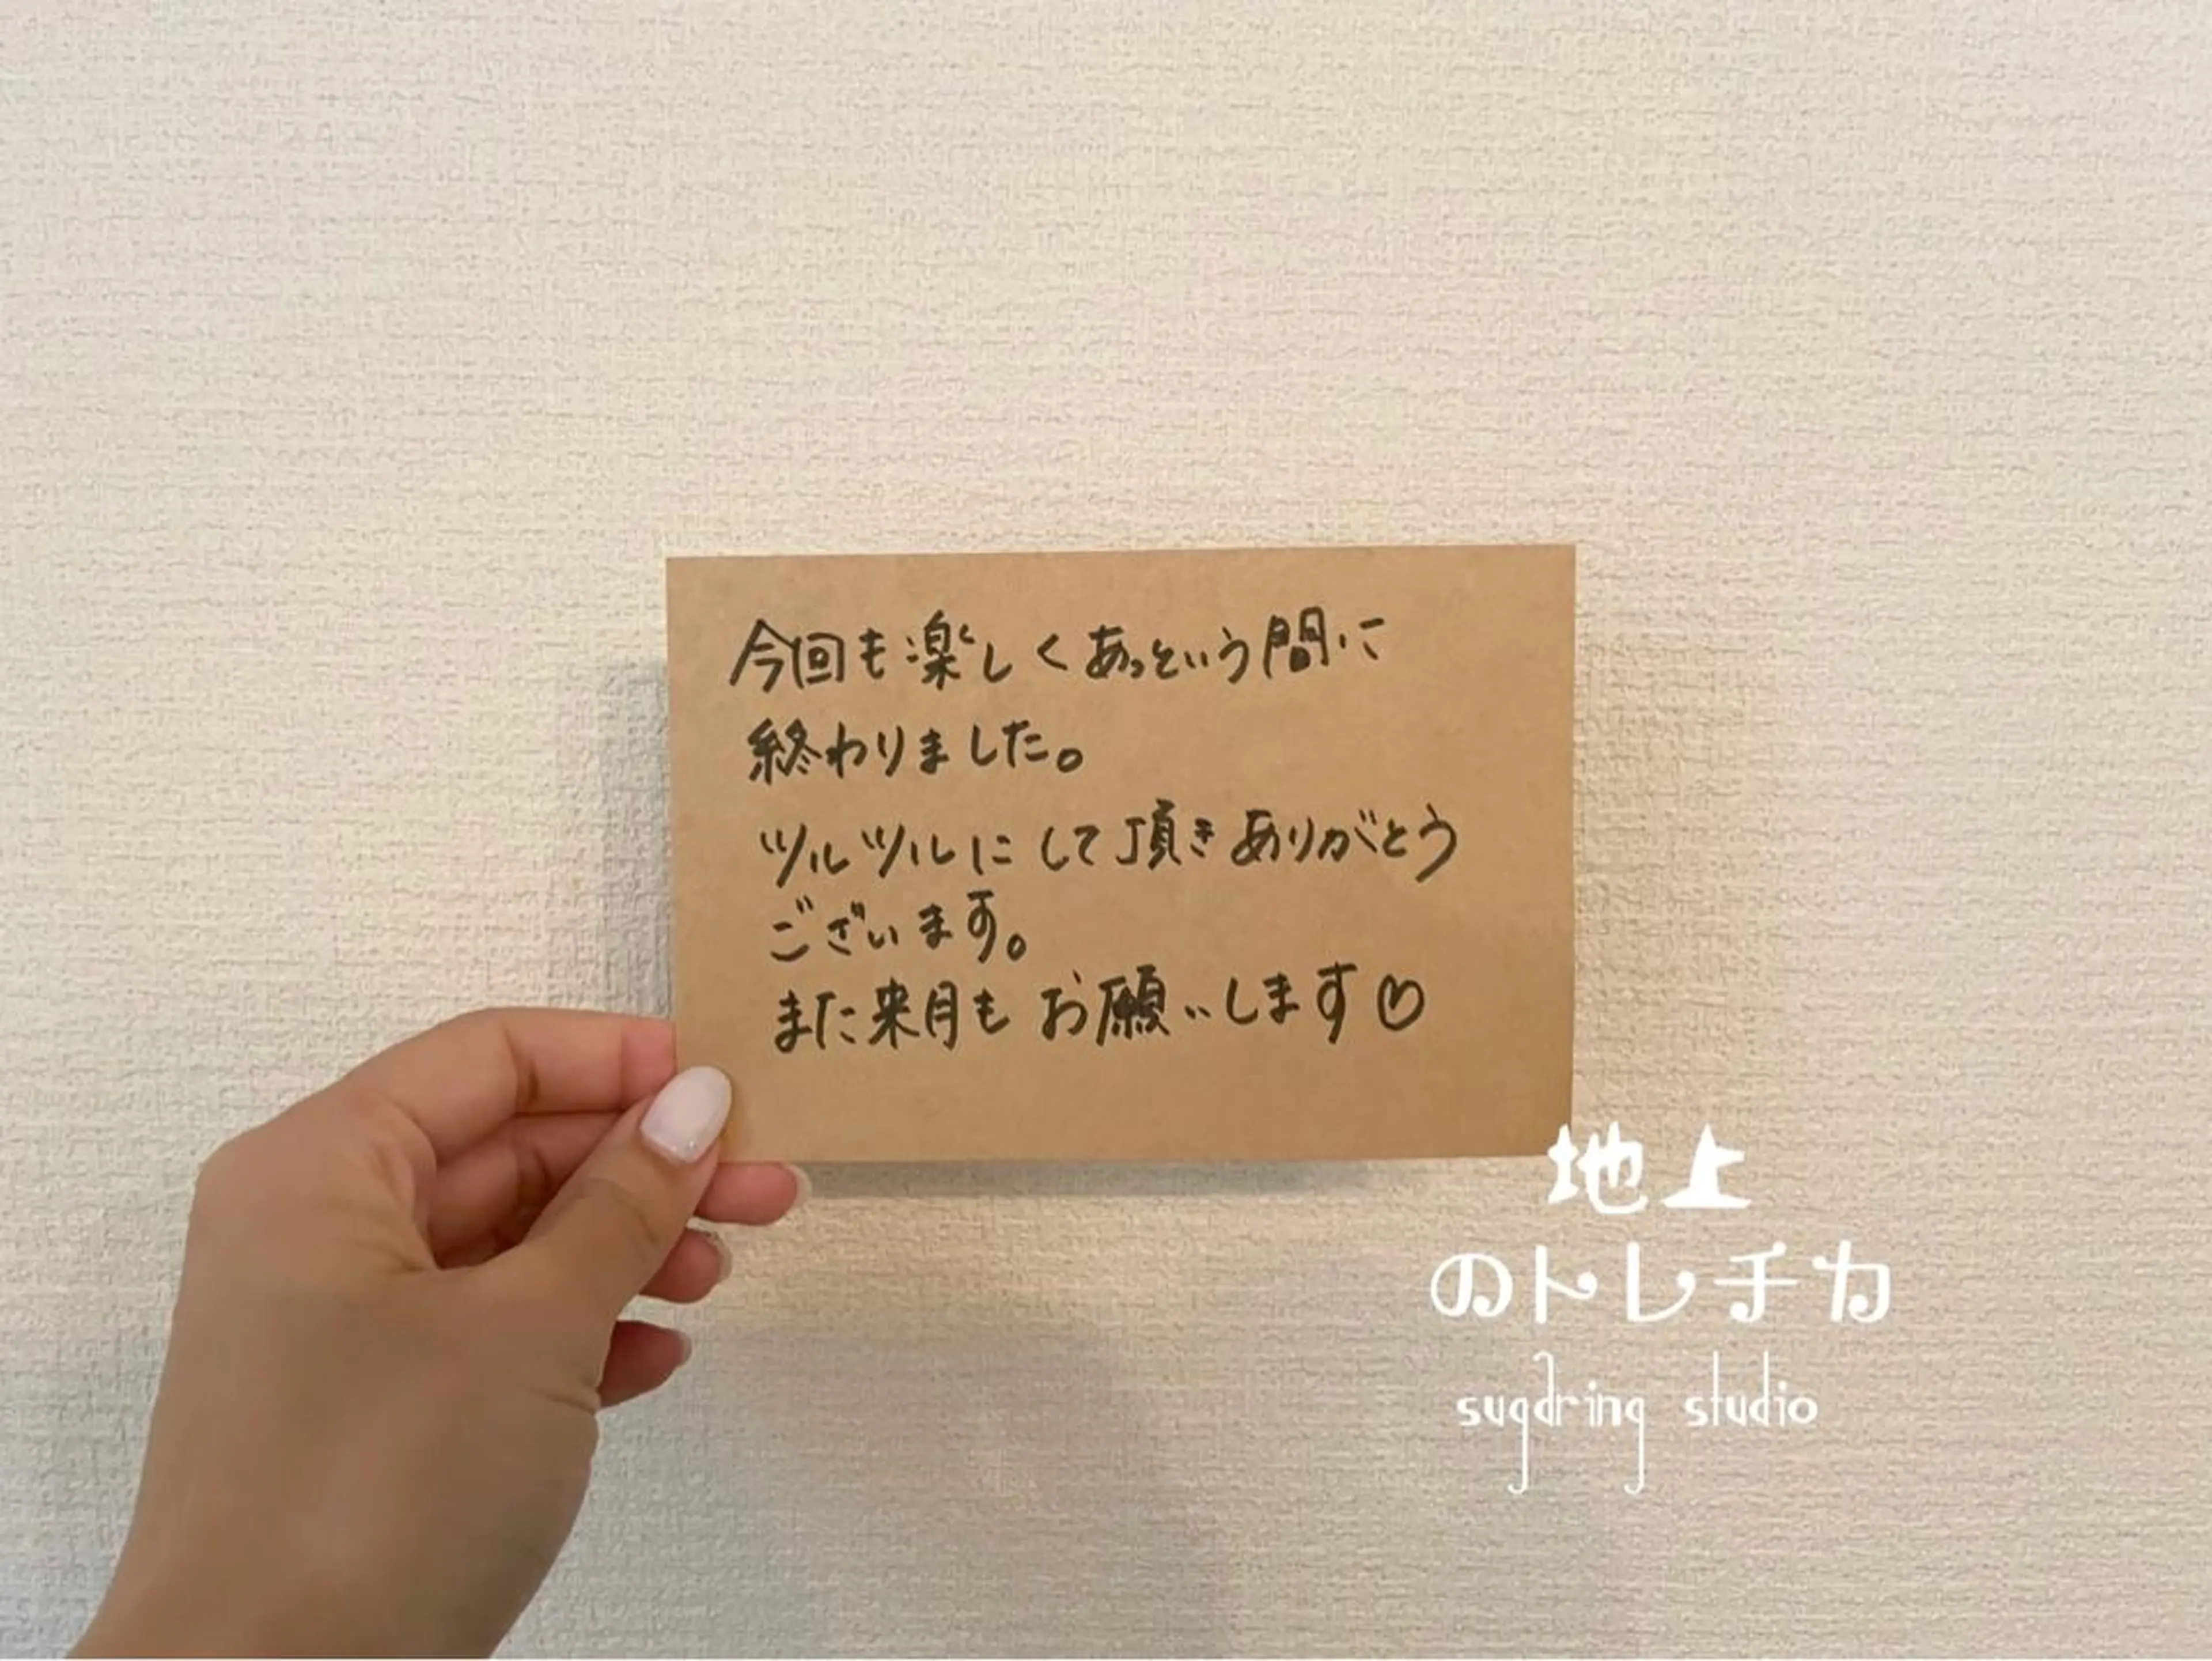 今回も楽しくあっという間に
終わりました。
ツルツルにして頂きありがとう
ございます。
また来月もお願いします♡
地上
のトレチカ
sugdring studio